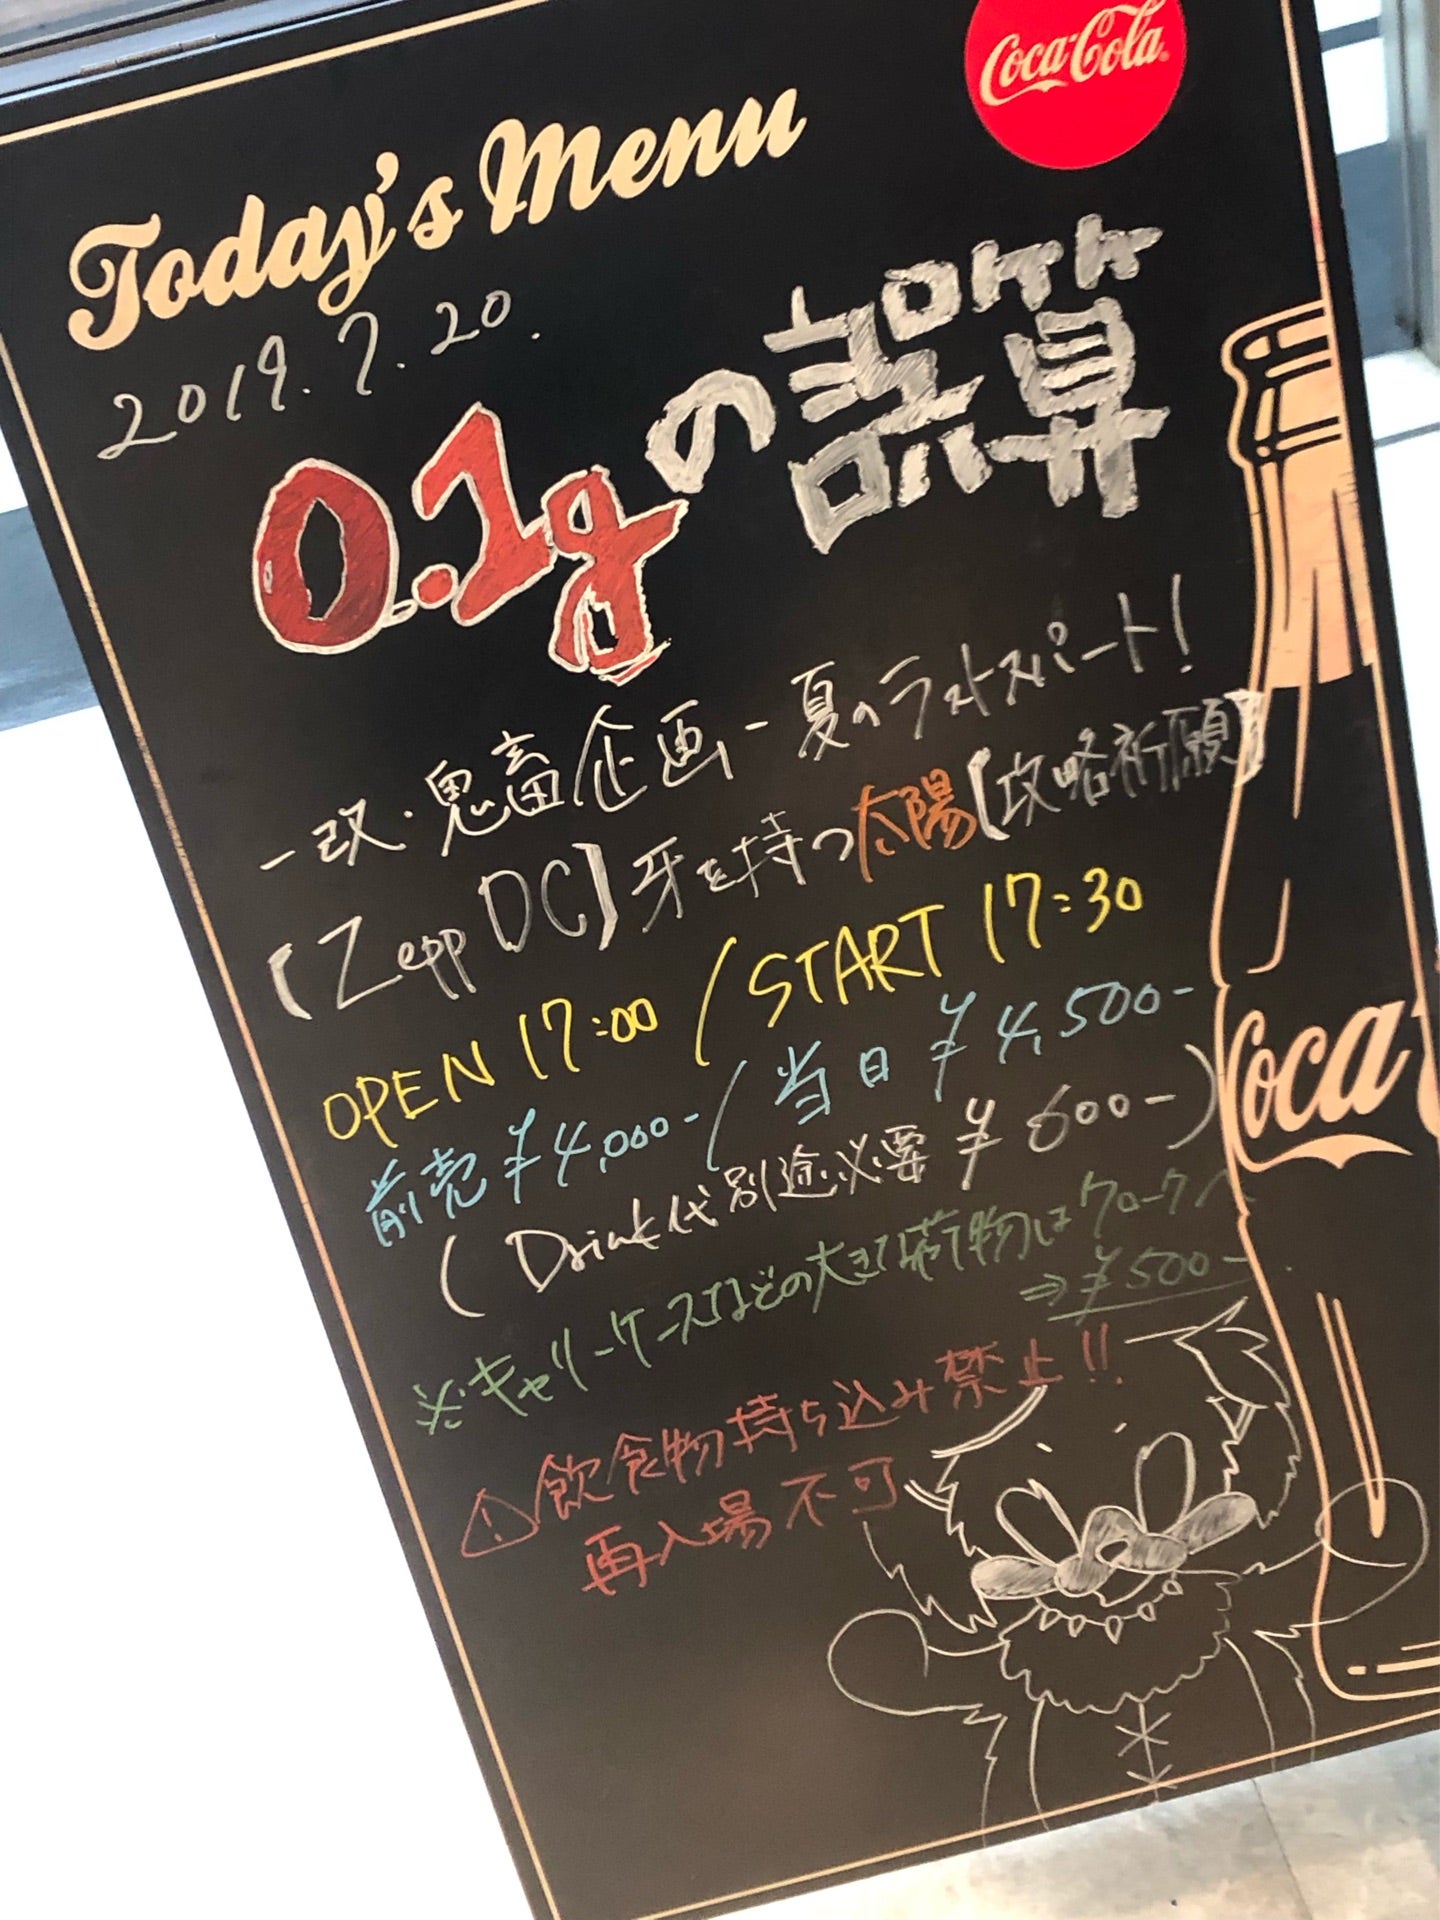 Coca-Cola
Today's Menu
2019.7.20.
0.1gの誤算
-改・鬼畜企画-夏のラストスパート!
【Zepp DC】牙を持つ太陽【攻略祈願】
OPEN 17:00 / START 17:30
前売¥4,000- / 当日¥4,500-
(Drink代別途必要¥600-)
※キャリーケースなどの大きな荷物はクロークへ
⇒¥500-
⚠飲食物持ち込み禁止!!
再入場不可
Coca